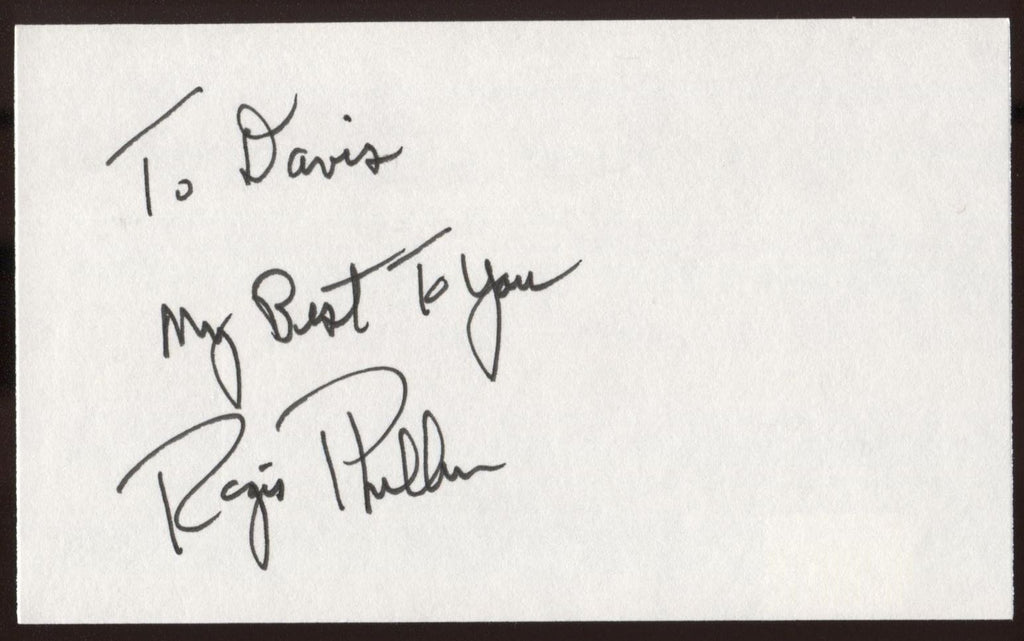 To Davis
My Best To You
Regis Philbin